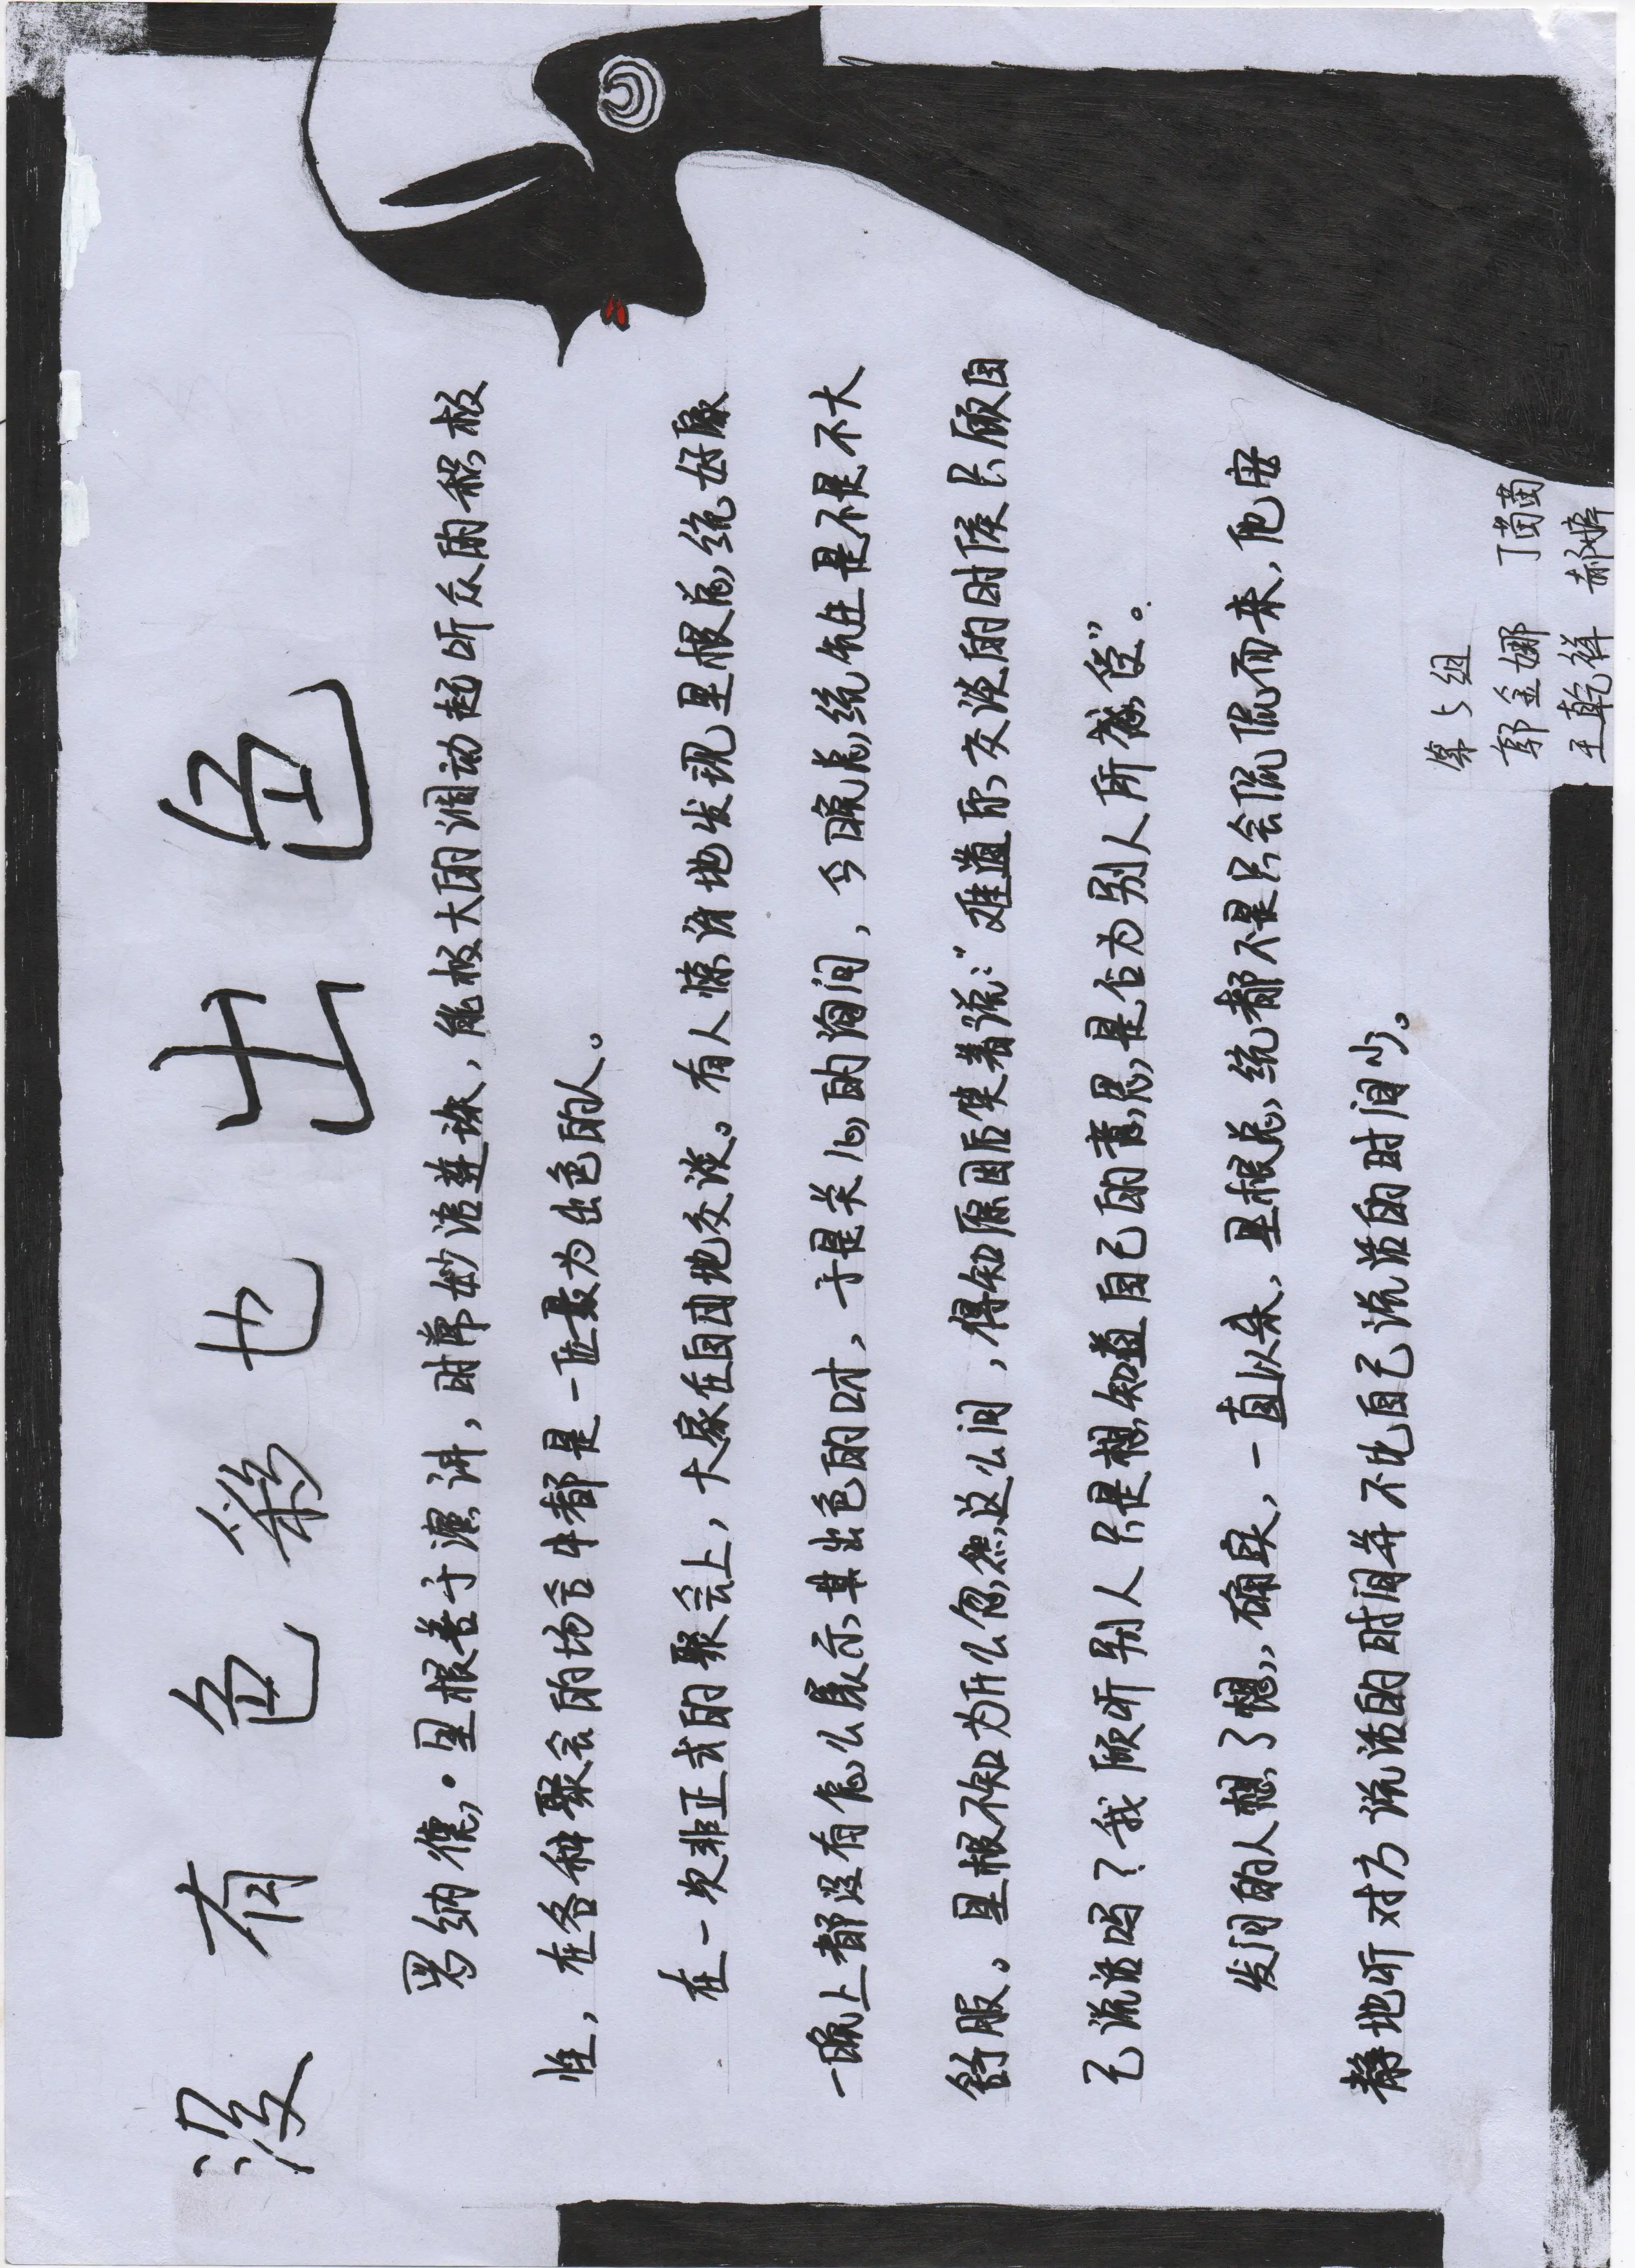 没有色彩也出色
罗纳德·里根善于演讲，时常妙语连珠，能极大的调动起听众的积极
性，在各种聚会的场合中都是一位最为出色的人。
在一次非正式的聚会上，大家在自由地交谈。有人惊讶地发现里根总统好像
一晚上都没有怎么展示其出色的口才，于是关心的询问，今晚总统先生是不是不大
舒服。里根不知为什么忽然这么问，得知原因后笑着说：“难道你交谈的时候只顾自
己说话吗？我顾听别人只是想知道自己的意思是否为别人所感受”。
发问的人想了想，确实，一直以来，里根总统都不是只会侃侃而来，他安
静地听对方说话的时间并不比自己说话的时间少。
第5组
郭金娜 丁苗苗
王乾祥 郝婷